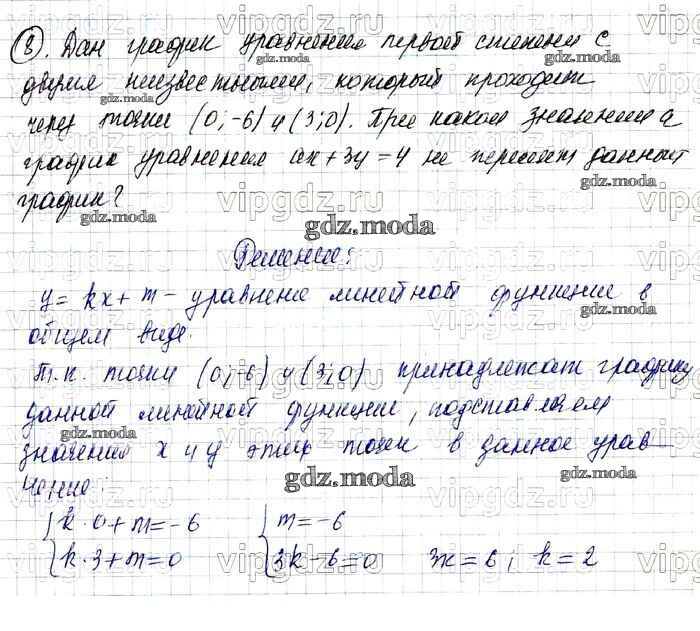 8. Дан график уравнения первой степени с
двумя неизвестными, который проходит
через точки (0;-6) и (3;0). При каком значении a
график уравнения ax+3y=4 не пересечёт данный
график?
Решение:
y=kx+m - уравнение линейной функции в
общем виде.
Т.к. точки (0;-6) и (3;0) принадлежат графику
данной линейной функции, подставляем
значения x и y этих точек в данное урав-
нение:
k·0+m=-6 m=-6
k·3+m=0 3k-6=0 3k=6; k=2
vipgdz.ru
gdz.moda